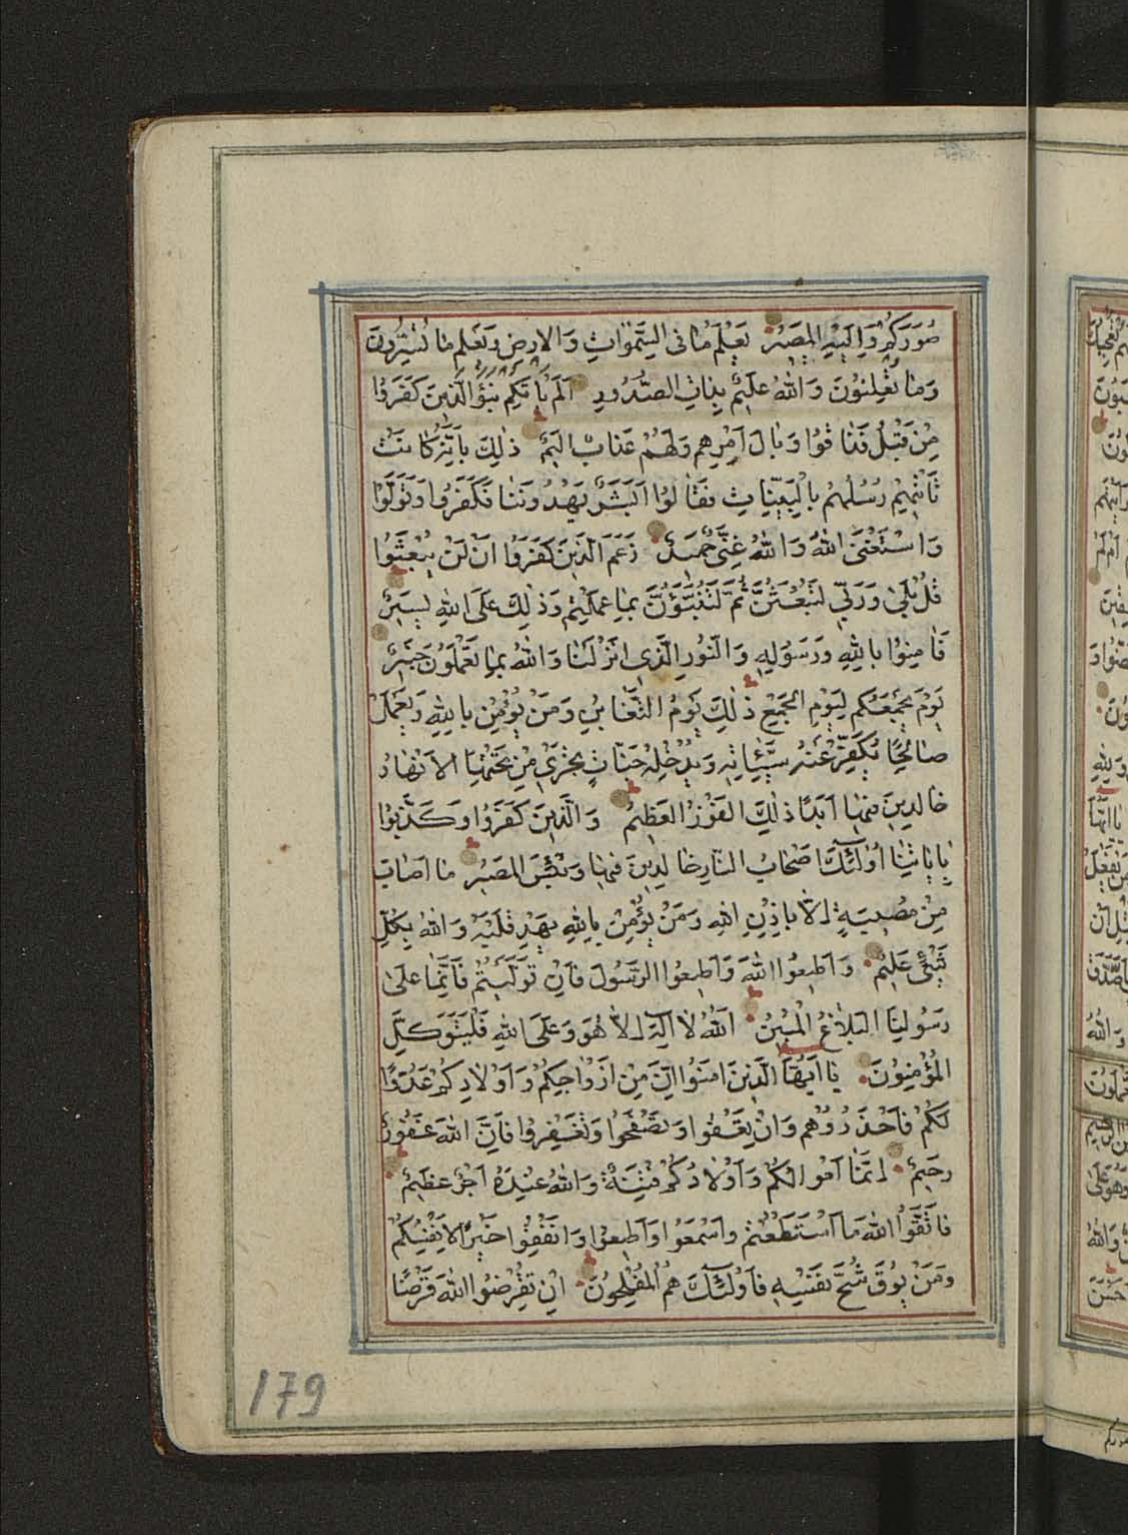 صُوَرَكُمْ وَاِلَيْهِ الْمَصِيرُ يَعْلَمُ مَا فِى السَّمٰوَاتِ وَالْاَرْضِ وَيَعْلَمُ مَا تُسِرُّونَ
وَمَا تُعْلِنُونَ وَاللهُ عَلِيمٌ بِذَاتِ الصُّدُورِ اَلَمْ يَاْتِكُمْ نَبَؤُ الَّذِينَ كَفَرُوا
مِنْ قَبْلُ فَذَاقُوا وَبَالَ اَمْرِهِمْ وَلَهُمْ عَذَابٌ اَلِيمٌ ذٰلِكَ بِاَنَّهُ كَانَتْ
تَاْتِيهِمْ رُسُلُهُمْ بِالْبَيِّنَاتِ فَقَالُوا اَبَشَرٌ يَهْدُونَنَا فَكَفَرُوا وَتَوَلَّوْا
وَاسْتَغْنَى اللهُ وَاللهُ غَنِىٌّ حَمِيدٌ زَعَمَ الَّذِينَ كَفَرُوا اَنْ لَنْ يُبْعَثُوا
قُلْ بَلٰى وَرَبِّى لَتُبْعَثُنَّ ثُمَّ لَتُنَبَّؤُنَّ بِمَا عَمِلْتُمْ وَذٰلِكَ عَلَى اللهِ يَسِيرٌ
فَاٰمِنُوا بِاللهِ وَرَسُولِهِ وَالنُّورِ الَّذِى اَنْزَلْنَا وَاللهُ بِمَا تَعْمَلُونَ خَبِيرٌ
يَوْمَ يَجْمَعُكُمْ لِيَوْمِ الْجَمْعِ ذٰلِكَ يَوْمُ التَّغَابُنِ وَمَنْ يُؤْمِنْ بِاللهِ وَيَعْمَلْ
صَالِحًا يُكَفِّرْ عَنْهُ سَيِّئَاتِهِ وَيُدْخِلْهُ جَنَّاتٍ تَجْرِى مِنْ تَحْتِهَا الْاَنْهَارُ
خَالِدِينَ فِيهَا اَبَدًا ذٰلِكَ الْفَوْزُ الْعَظِيمُ وَالَّذِينَ كَفَرُوا وَكَذَّبُوا
بِاٰيَاتِنَا اُولٰئِكَ اَصْحَابُ النَّارِ خَالِدِينَ فِيهَا وَبِئْسَ الْمَصِيرُ مَا اَصَابَ
مِنْ مُصِيبَةٍ اِلَّا بِاِذْنِ اللهِ وَمَنْ يُؤْمِنْ بِاللهِ يَهْدِ قَلْبَهُ وَاللهُ بِكُلِّ
شَىْءٍ عَلِيمٌ وَاَطِيعُوا اللهَ وَاَطِيعُوا الرَّسُولَ فَاِنْ تَوَلَّيْتُمْ فَاِنَّمَا عَلٰى
رَسُولِنَا الْبَلَاغُ الْمُبِينُ اَللهُ لَا اِلٰهَ اِلَّا هُوَ وَعَلَى اللهِ فَلْيَتَوَكَّلِ
الْمُؤْمِنُونَ يَا اَيُّهَا الَّذِينَ اٰمَنُوا اِنَّ مِنْ اَزْوَاجِكُمْ وَاَوْلَادِكُمْ عَدُوًّا
لَكُمْ فَاحْذَرُوهُمْ وَاِنْ تَعْفُوا وَتَصْفَحُوا وَتَغْفِرُوا فَاِنَّ اللهَ غَفُورٌ
رَحِيمٌ اِنَّمَا اَمْوَالُكُمْ وَاَوْلَادُكُمْ فِتْنَةٌ وَاللهُ عِنْدَهُ اَجْرٌ عَظِيمٌ
فَاتَّقُوا اللهَ مَا اسْتَطَعْتُمْ وَاسْمَعُوا وَاَطِيعُوا وَاَنْفِقُوا خَيْرًا لِاَنْفُسِكُمْ
وَمَنْ يُوقَ شُحَّ نَفْسِهِ فَاُولٰئِكَ هُمُ الْمُفْلِحُونَ اِنْ تُقْرِضُوا اللهَ قَرْضًا
179